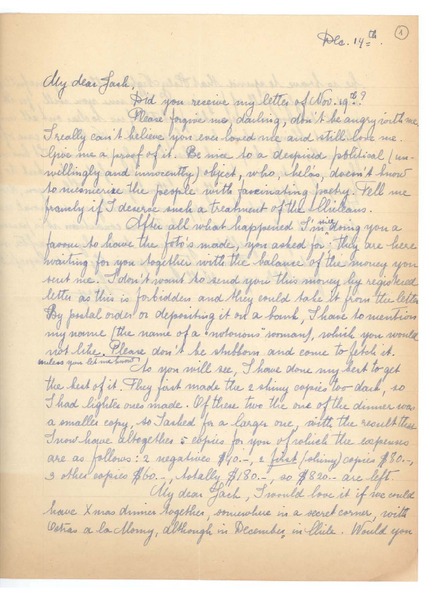 Dec. 14th. 1
My dear Jack,
Did you receive my letter of Nov. 19th?
Please forgive me, darling, don't be angry with me
I really can't believe you ever loved me and still love me.
Give me a proof of it. Be nice to a despised political (un-
willingly and innocently) object, who, helas, doesn't know
to mesmerise the people with fascinating poetry. Tell me
frankly if I deserve such a treatment of the Chileans.
After all what happened I'm still doing you a
favour to have the foto's made, you asked for: they are here
waiting for you together with the balance of the money you
sent me. I don't want to send you this money by registered
letter as this is forbidden, and they could take it from the letter
By postal order or depositing it on a bank, I have to mention
my name (the name of a "notorious" woman), which you would
not like. Please don't be stubborn and come to fetch it.
unless you let me know)
As you will see, I have done my best to get
the best of it. They first made the 2 shiny copies too dark, so
I had lighter ones made. Of these two the one of the dinner was
a smaller copy, so I asked for a larger one, with the result that
I now have altogether 5 copies for you of which the expenses
are as follows: 2 negatives $40.-, 2 first (shiny) copies $80.-,
3 other copies $60.-, totally $180.-, so $820.- are left.
My dear Jack, I would love it if we could
have Xmas dinner together, somewhere in a secret corner, with
ostras a la Morny, although in December, in Chile. Would you